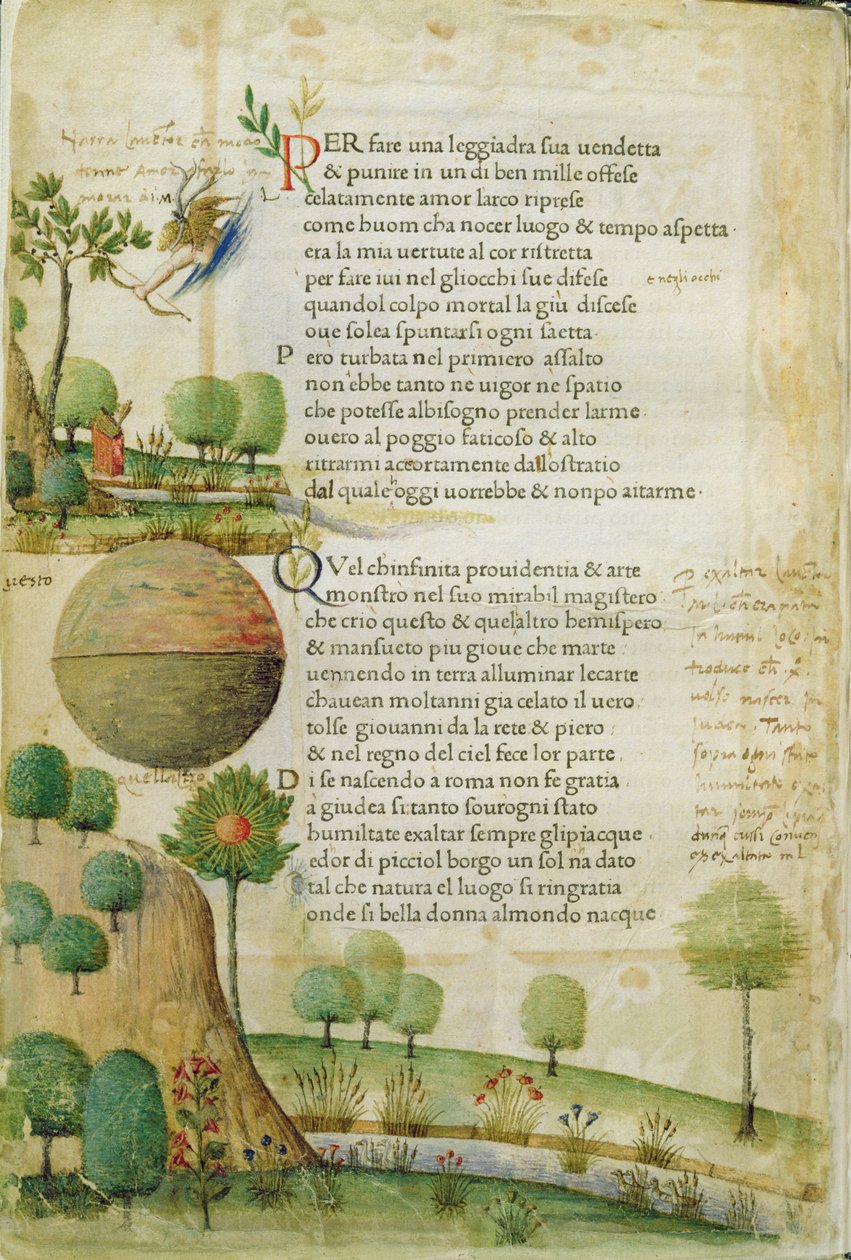 PER fare una leggiadra sua uendetta
& punire in un di ben mille offese
celatamente amor larco riprese
come huom cha nocer luogo & tempo aspetta·
era la mia uertute al cor ristretta
per fare iui nel gliocchi sue difese
e negli occhi
quandol colpo mortal la giù discese
oue solea spuntarsi ogni saetta·
Però turbata nel primiero assalto
non ebbe tanto nè uigor nè spatio
che potesse albisogno prender larme·
ouero al poggio faticoso & alto
ritrarmi accortamente dallo stratio
dal quale hoggi uorrebbe & non pò aitarme·
QVel chinfinita prouidentia & arte
monstrò nel suo mirabil magistero
che criò questo & quellaltro hemispero
& mansueto piu gioue che marte
uennendo in terra alluminar lecarte
chauean moltanni gia celato il uero
tolse giouanni da la rete & piero
& nel regno del ciel fece lor parte
Di se nascendo à roma non fe gratia
à giudea si tanto sourogni stato
humiltate exaltar sempre glipiacque
ed or di picciol borgo un sol na dato
tal che natura el luogo si ringratia
onde si bella donna almondo nacque
questo
quellastro
Tanto
sopra ogni stato